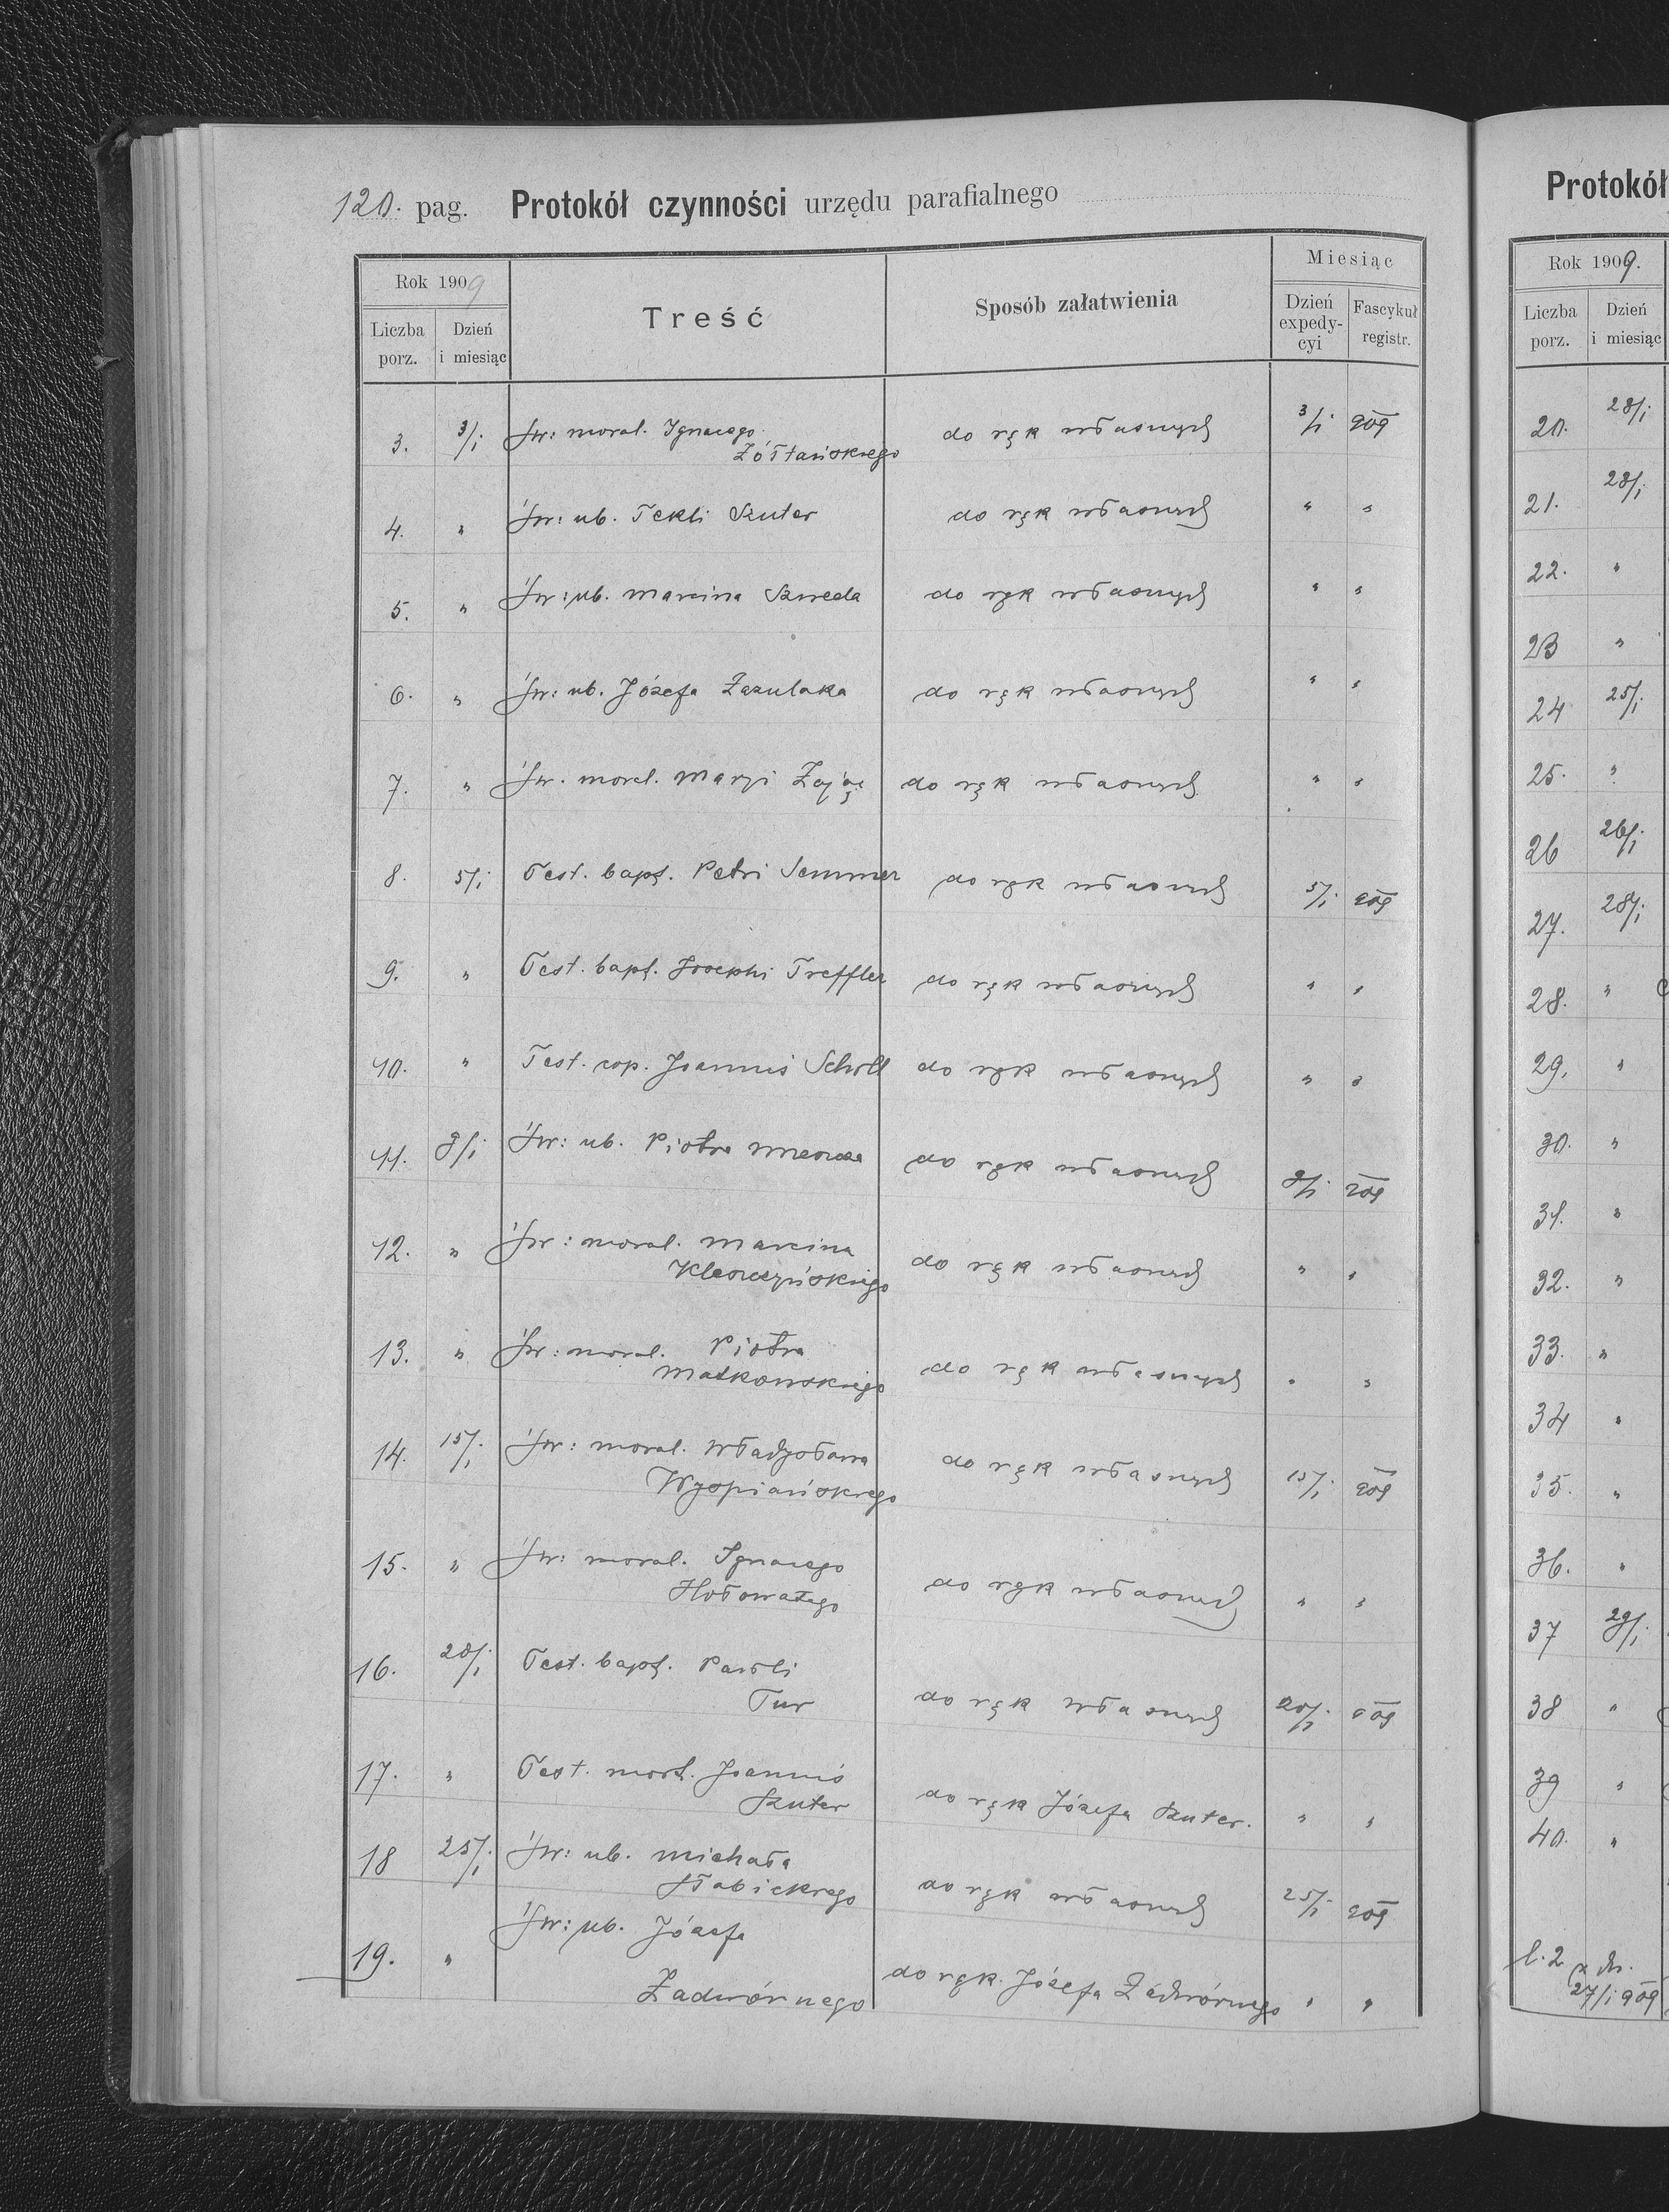 120. pag. Protokół czynności urzędu parafialnego
Rok 1909
Liczba porz.
Dzień i miesiąc
Treść
Sposób załatwienia
Miesiąc
Dzień expedy-cyi
Fascykuł registr.
3. 3/1 Św: moral. Ignacego do rąk własnych 3/1 909
Żółtańskiego
4. " Św: ub. Tekli Szuter do rąk własnych " "
5. " Św: ub. Marcina Szweda do rąk własnych " "
6. " Św: ub. Józefa Zazulaka do rąk własnych " "
7. " Św. moral. Maryi Zając do rąk własnych " "
8. 5/1 Test. bapt. Petri Semmer do rąk własnych 5/1 909
9. " Test. bapt. Josephi Treffler do rąk własnych " "
10. " Test. cop. Joannis Scholl do rąk własnych " "
11. 8/1 Św: ub. Piotra do rąk własnych 8/1 909
12. " Św: moral. Marcina do rąk własnych " "
Kleszczyńskiego
13. " Św: moral. Piotra do rąk własnych " "
Matkowskiego
14. 15/1 Św: moral. Władysława do rąk własnych 15/1 909
Wyspiańskiego
15. " Św: moral. Ignacego do rąk własnych " "
Hołowatego
16. 20/1 Test. bapt. Pauli do rąk własnych 20/1 909
Tur
17. " Test. mort. Joannis do rąk Józefa Szuter. " "
Szuter
18 25/1 Św: ub. Michała do rąk własnych 25/1 909
Słabickiego
19. " Św: ub. Józefa do rąk Józefa Zadwórnego " "
Zadwórnego
Protokół
Rok 1909.
Liczba porz.
Dzień i miesiąc
20. 28/1
21. 28/1
22. "
23 "
24 25/1
25. "
26 26/1
27. 28/1
28. "
29. "
30. "
31. "
32. "
33. "
34 "
35. "
36. "
37 29/1
38 "
39 "
40. "
l. 2
27/1 909